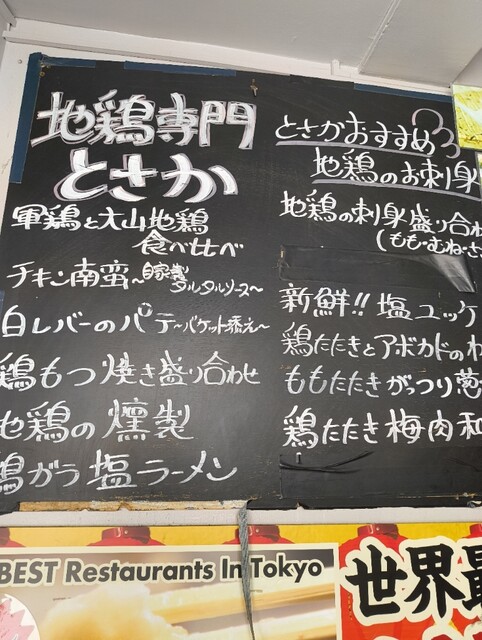 地鶏専門
とさか
軍鶏と大山地鶏
食べ比べ
チキン南蛮~自家製
タルタルソース~
白レバーのパテ~バケット添え~
鶏もつ焼き盛り合わせ
地鶏の燻製
鶏ガラ塩ラーメン
とさかおすすめ
地鶏のお刺身
地鶏の刺身盛り合わ
(もも・むね・さ
新鮮!!塩ユッケ
鶏たたきとアボカドのわ
ももたたきがっつり葱
鶏たたき梅肉和
BEST Restaurants In Tokyo
世界最